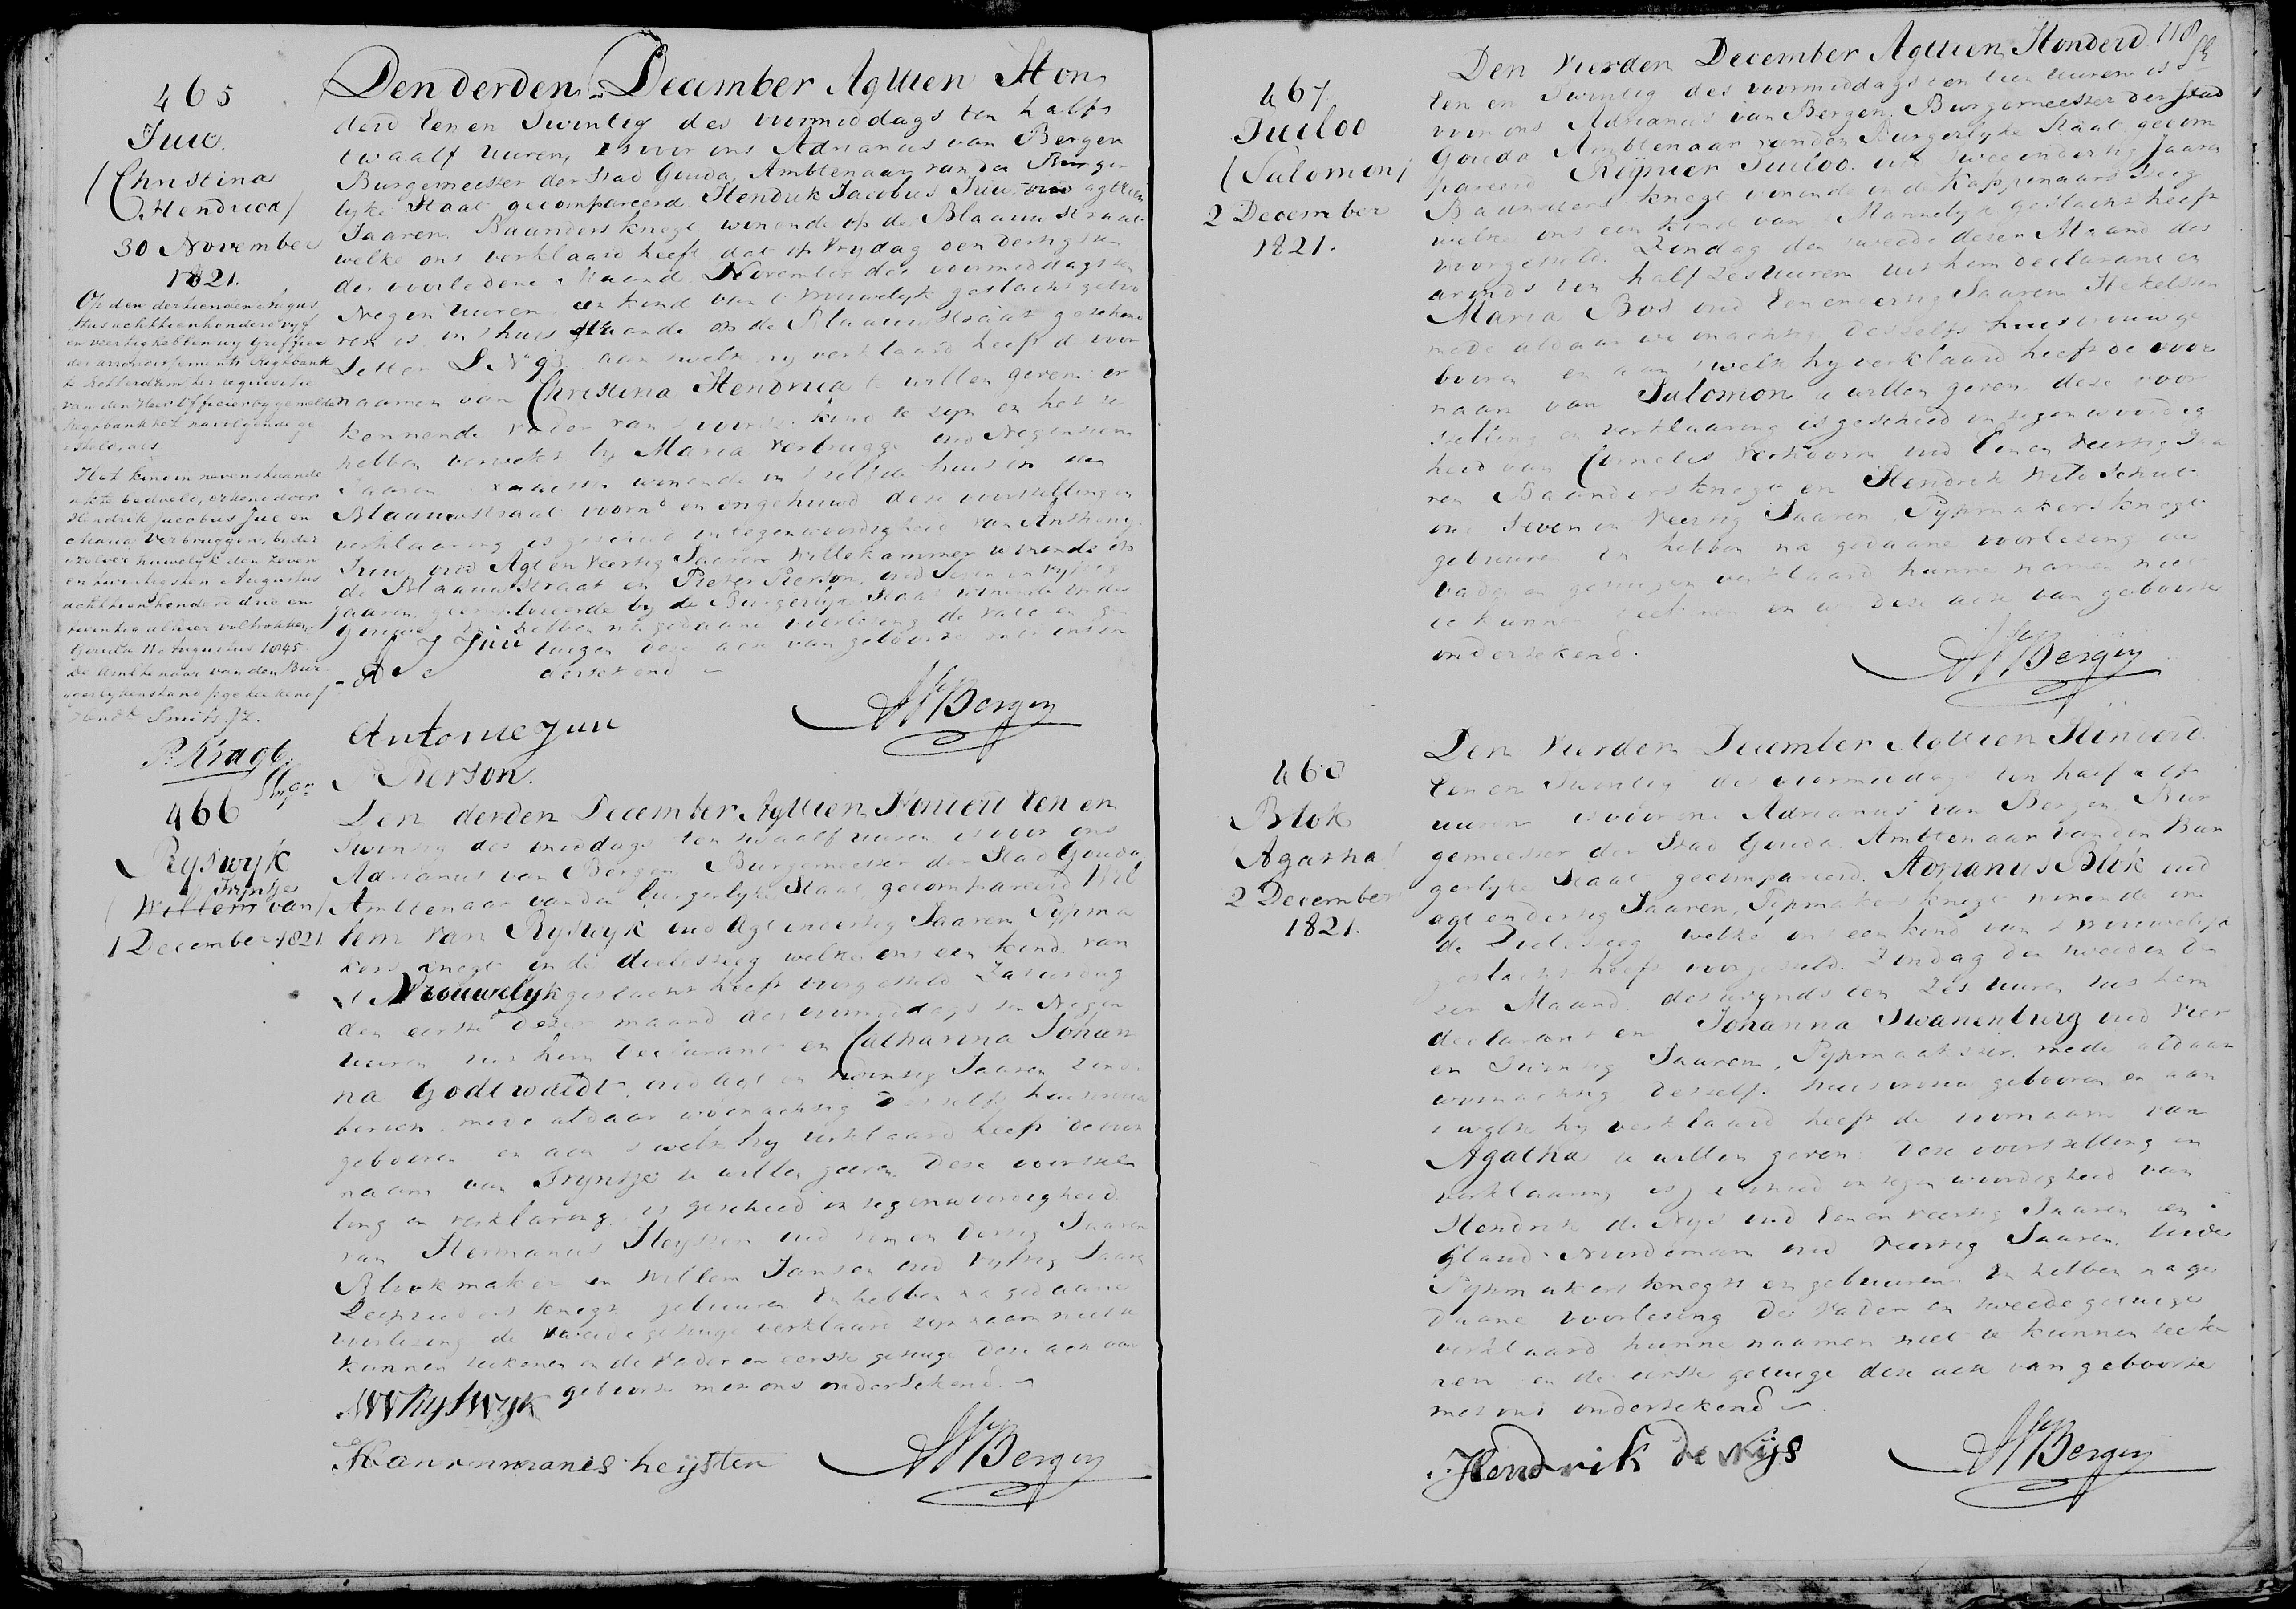 465
Juu.
(Christina
Hendrica)
30 November
1821.
Op den dertienden Augus
tus achttienhonderd vyf
en veertig hebben wy Griffier
der arrondissements Regtbank
te Rotterdam ter requisitie
van den Heer Officier by gemelde
Regtbank het navolgende ge
steld, als
Het kind in nevenstaande
akte bedoeld, erkend door
Hendrik Jacobus Juu en
Maria Verbruggen, by der
zelver huwelyk den zeven
en twintigsten Augustus
achttienhonderd drie en
twintig alhier voltrokken.
Gouda Augustus 1845
De Ambtenaar van den Bur
gerlyken stand /:geteekend/
Smits Jz.
P. Kragt
Den derden December Agttien Hon
derd Een en Twintig des voormiddags ten half
twaalf Uuren, is voor ons Adrianus van Bergen
Burgemeester der Stad Gouda, Ambtenaar van den Burger
lyke Staat gecompareerd Hendrik Jacobus Juu oud agttien
Jaaren Baanders knegt wonende op de Blaauw straat
welke ons verklaard heeft dat op Vrydag den dertigsten
der voorledene Maand November des voormiddags ten
Negen Uuren een kind van t Vrouwelyk geslacht geboo
ren is in t huis staande op de Blaauwstraat getekend
Letter L No 93 aan t welk hy verklaard heeft de voor
naamen van Christina Hendrica te willen geven er
kennende Vader van t voorsz. kind te zyn en het te
hebben verwekt by Maria Verbrugge oud Negentien
Jaaren wonende in t zelfde huis in de
Blaauwstraat voornd en ongehuwd deze voorstelling en
verklaaring is geschied in tegenwoordigheid van Anthony
Juu oud Agt en Veertig Jaaren Wollekammer wonende op
de Blaauwstraat en Pieter Pierson oud Seven en Vyftig
Jaaren geemployeerde by de Burgerlyke Staat wonende in de
Gouwe en hebben na gedaane voorlezing de Vader en ge
tuigen deze acte van geboorte met ons on
dertekend
H J Juu
Antonie Juu
P Pierson.
AVBergen
466
Ryswyk
Tryntje
(Willem van)
1 December 1821
Den derden December Agttien Honderd Een en
Twintig des middags ten twaalf uuren is voor ons
Adrianus van Bergen Burgemeester der Stad Gouda
Ambtenaar van den burgerlyke Staat, gecompareerd Wil
lem van Ryswyk oud Agt en dertig Jaaren Pypma
kers knegt in de dielesteeg welke ons een kind van
t Vrouwelyk geslacht heeft voorgesteld Zaturdag
den eerste dezer maand des voormiddags ten Negen
Uuren uit hem declarant en Catharina Johan
na Godtwaldt oud Agt en twintig Jaaren zonder
beroep mede aldaar woonachtig deszelfs huisvrouw
gebooren en aan t welk hy verklaard heeft de voor
naam van Tryntje te willen geeven. Deze voorstel
ling en verklaring is geschied in tegenwoordigheid
van Hermanus Heyster oud Een en dertig Jaaren
Blokmaker en Willem Jansen oud vyftig Jaaren
knegt gebuuren En hebben na gedaane
voorlezing de tweede getuige verklaard zyn naam niet te
kunnen teekenen en de Vader en eerste getuige deze acte van
geboorte met ons ondertekend.
WVRyswyk
Hanrnmanes heijster
AVBergen
118
467
Tuiloo
(Salomon)
2 December
1821.
Den Vierden December Agttien Honderd
Een en Twintig des voormiddags ten tien Uuren is
voor ons Adrianus van Bergen, Burgemeester der Stad
Gouda Ambtenaar van den Burgerlyke Staat gecom
pareerd Reynier Tuiloo oud Twee en dertig Jaaren
Baanders knegt wonende in de Kappenaars steeg
welke ons een kind van t Mannelyk geslacht heeft
voorgesteld Zondag den tweede dezer Maand des
avonds ten half zes Uuren uit hem declarant en
Maria Bos oud Een en dertig Jaaren Stekelster
mede aldaar woonachtig deszelfs huisvrouw ge
booren en aan t welk hy verklaard heeft de voor
naam van Salomon te willen geven deze voor
stelling en verklaaring is geschied in tegenwoordig
heid van Cornelis Verhoorn oud Een en Veertig Jaa
ren Baanders knegt en Hendrik Schut
oud Seven en Veertig Jaaren Pypmakers knegt
gebuuren En hebben na gedaane voorlezing de
Vader en getuigen verklaard hunne namen niet
te kunnen teekenen en wy deze acte van geboorte
ondertekend.
AVBergen
468
Blok
(Agatha)
2 December
1821.
Den Vierden December Agttien Honderd
Een en Twintig des voormiddags ten half elf
uuren is voor ons Adrianus van Bergen, Bur
gemeester der Stad Gouda Ambtenaar van den Bur
gerlyke Staat gecompareerd Adrianus Blok oud
agt en dertig Jaaren, Pypmakers knegt wonende in
de Dielesteeg welke ons een kind van t Vrouwelyk
geslacht heeft voorgesteld Zondag den tweeden de
zer Maand des avonds ten zes uuren uit hem
declarant en Johanna Swanenburg oud Vier
en Twintig Jaaren, Pypmaakster mede aldaar
woonachtig deszelfs huisvrouw gebooren en aan
t welk hy verklaard heeft de voornaam van
Agatha te willen geven. Deze voorstelling en
verklaaring is geschied in tegenwoordigheid van
Hendrik de Nys oud Een en Veertig Jaaren en
Noordeman oud Veertig Jaaren, beide
Pypmakers knegts en gebuuren. En hebben na ge
daane voorlezing de Vader en tweede getuige
verklaard hunne naamen niet te kunnen teeke
nen en de eerste getuige deze acte van geboorte
met ons ondertekend.
Hendrik de Nijs
AVBergen